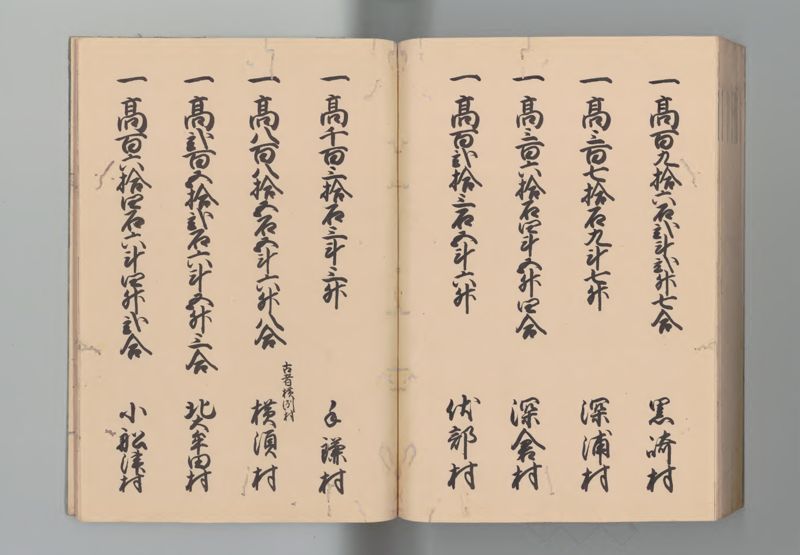 一高百九拾六石弐斗弐升七合 黒崎村
一高三百七拾石九斗七升 深浦村
一高三百六拾石四斗五升四合 深倉村
一高百弐拾三石五斗六升 伏部村
一高千百三拾石三斗三升 手鎌村
一高八百八拾五石五斗六升八合 横須村
古者横渕村
一高弐百五拾弐石六斗五升三合 北大牟田村
一高百六拾四石六斗四升弐合 小船津村